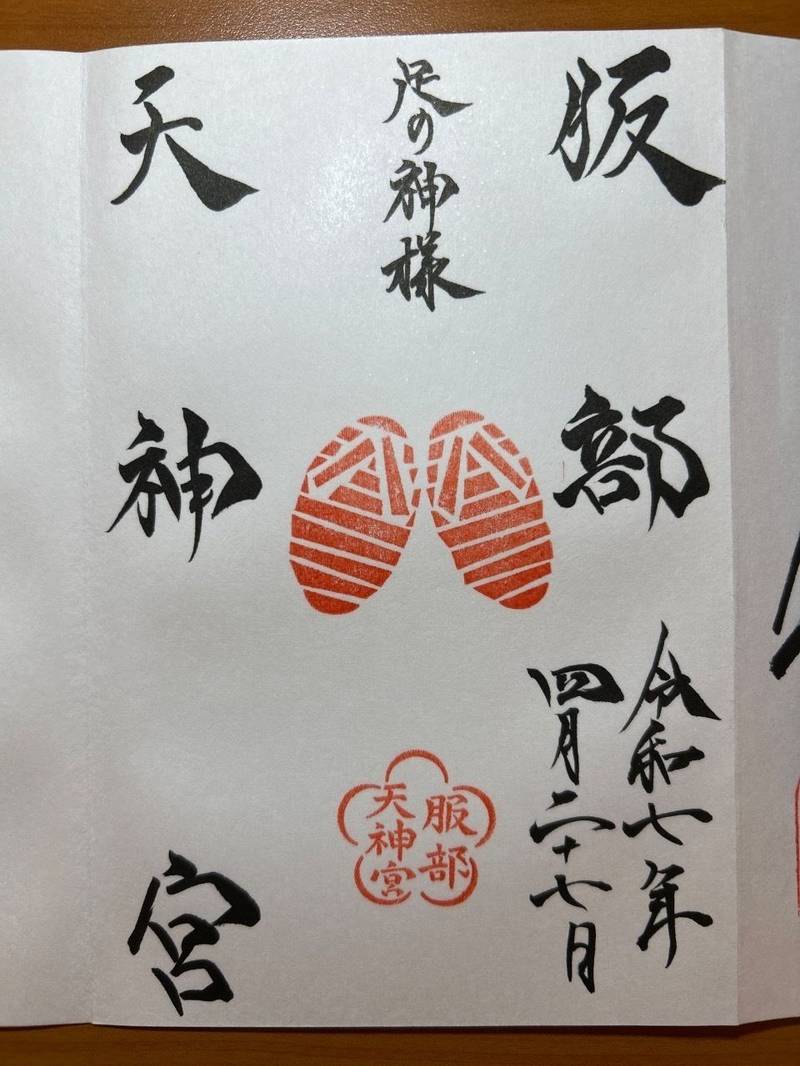 服部
足の神様
天神宮
令和七年
四月二十七日
服部
天神宮